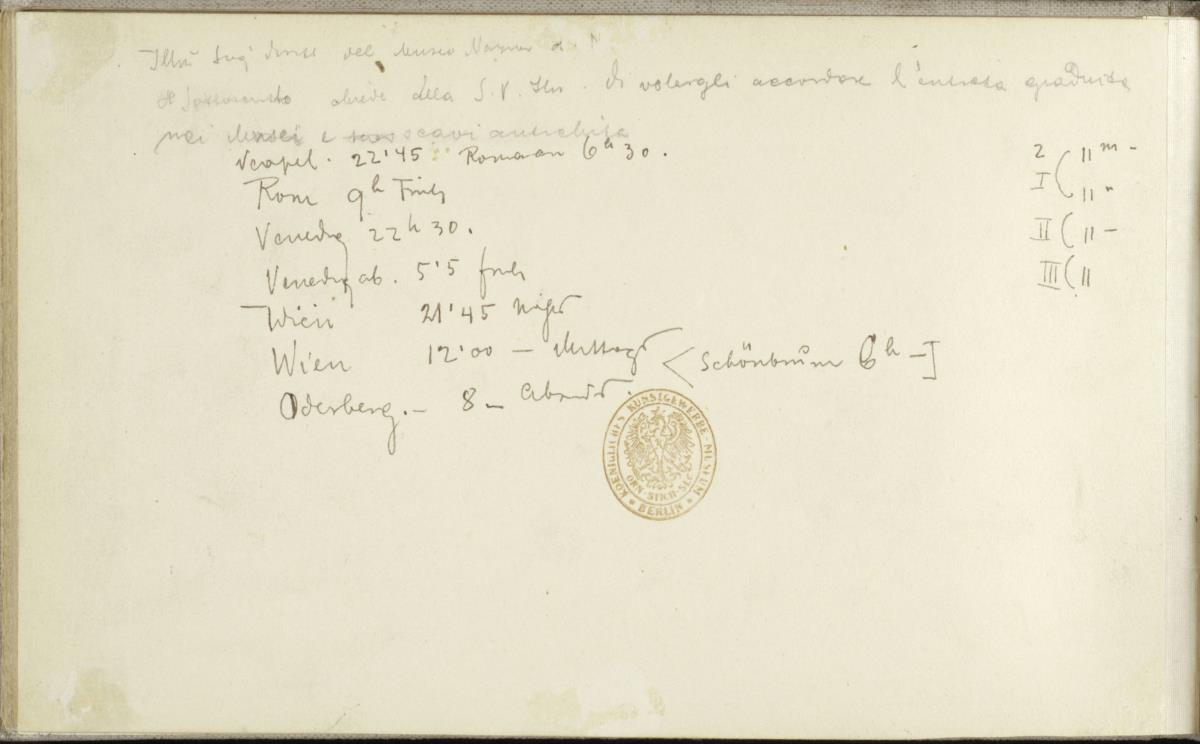 Illmo Sig dirett del Museo Nazion di N
Il sottoscritto chiede della S.V. Ill. di volergli accordare l'entrata graduita
nei Musei e scavi antichita
Neapel. 22'45 Roma an 6h 30.
Rom 9h Früh
Venedig 22h 30.
Venedig ab. 5'5 früh
Wien 21'45 Nachts
Wien 12'00 — Mittags < Schönbrunn 6h —]
Oderberg. — 8 — Abends.
2 ( 11 m -
I 11 "
II ( 11 -
III ( 11
KOENIGLICHES KUNSTGEWERBE-MUSEUM
ORN-STICH-SLG
* BERLIN *